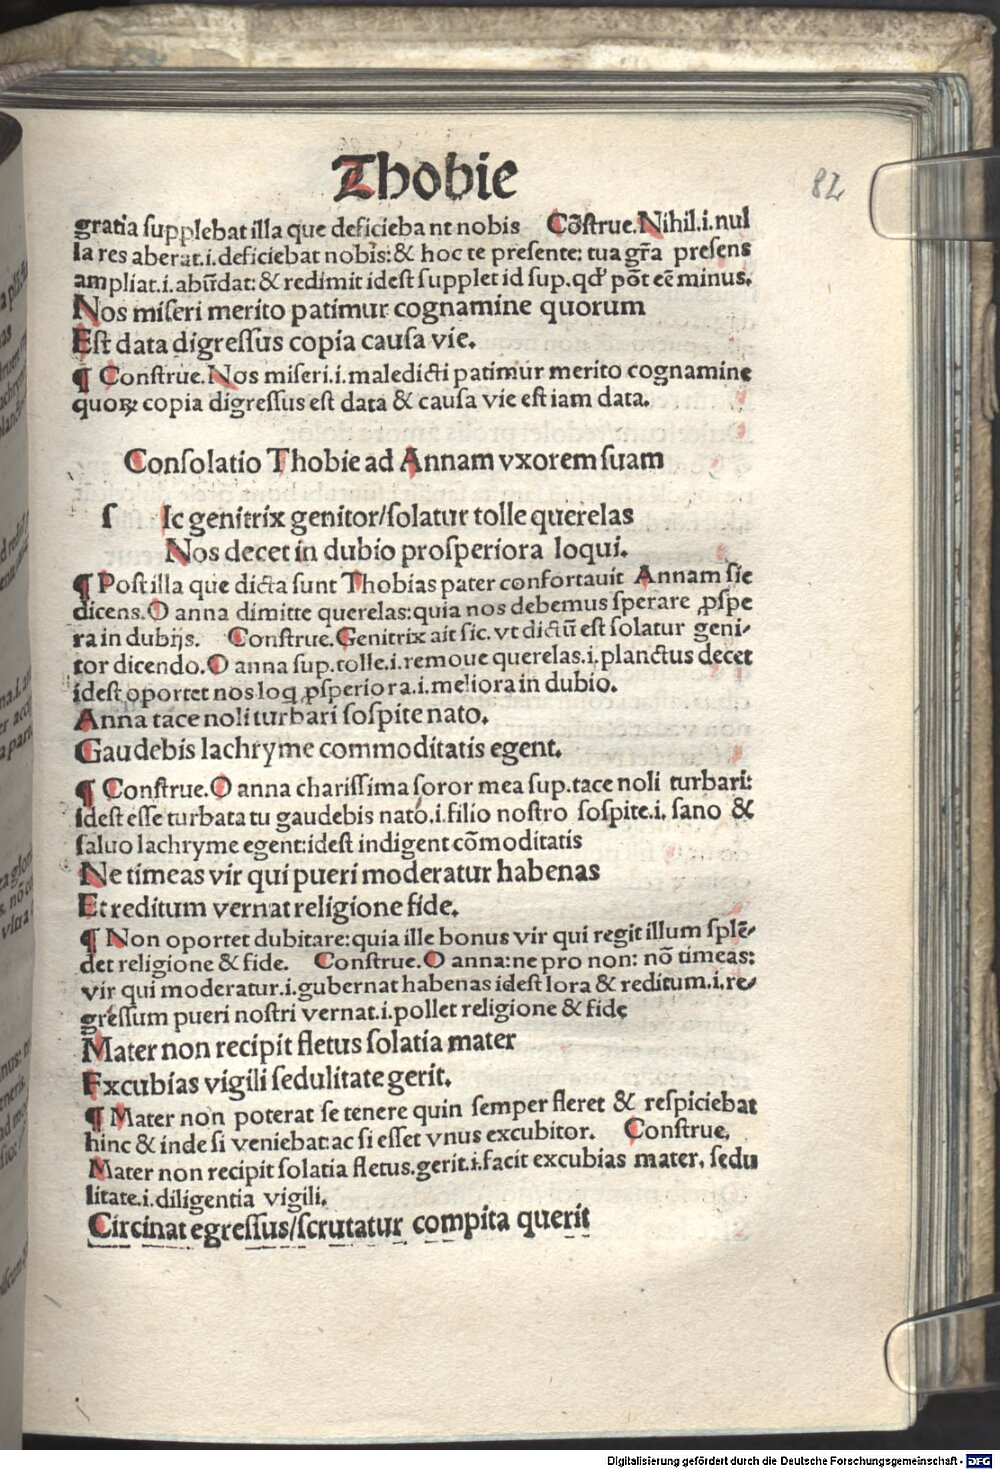 Thobie
82
gratia ſupplebat illa que deficieba nt nobis Cõſtrue.Nihil.i.nul
la res aberat.i.deficiebat nobis:& hoc te preſente: tua gr̃a preſens
ampliat.i.abũdat:& redimit ideſt ſupplet id ſup.qd' põt eẽ minus.
Nos miſeri merito patimur cognamine quorum
Eſt data digreſſus copia cauſa vie.
¶ Conſtrue.Nos miſeri.i.maledicti patimur merito cognamine
quoꝝ copia digreſſus eſt data & cauſa vie eſt iam data.
Conſolatio Thobie ad Annam vxorem ſuam
ſ Ic genitrix genitor/ſolatur tolle querelas
Nos decet in dubio proſperiora loqui.
¶ Poſt illa que dicta ſunt Thobias pater confortauit Annam ſic
dicens.O anna dimitte querelas:quia nos debemus ſperare ꝓſpe
ra in dubijs. Conſtrue.Genitrix ait ſic.vt dictũ eſt ſolatur geni-
tor dicendo.O anna ſup.tolle.i.remoue querelas.i.planctus decet
ideſt oportet nos loq ꝓſperiora.i.meliora in dubio.
Anna tace noli turbari ſoſpite nato.
Gaudebis lachryme commoditatis egent.
¶ Conſtrue.O anna chariſſima ſoror mea ſup.tace noli turbari:
ideſt eſſe turbata tu gaudebis nato.i.filio noſtro ſoſpite.i. ſano &
ſaluo lachryme egent:ideſt indigent cõmoditatis
Ne timeas vir qui pueri moderatur habenas
Et reditum vernat religione fide.
¶ Non oportet dubitare:quia ille bonus vir qui regit illum ſplẽ-
det religione & fide. Conſtrue.O anna:ne pro non: nõ timeas:
vir qui moderatur.i.gubernat habenas ideſt lora & reditum.i.re-
greſſum pueri noſtri vernat.i.pollet religione & fide
Mater non recipit fletus ſolatia mater
Excubias vigili ſedulitate gerit.
¶ Mater non poterat ſe tenere quin ſemper fleret & reſpiciebat
hinc & inde ſi veniebat:ac ſi eſſet vnus excubitor. Conſtrue.
Mater non recipit ſolatia fletus.gerit.i.facit excubias mater, ſedu
litate.i.diligentia vigili.
Circinat egreſſus/ſcrutatur compita querit
Digitalisierung gefördert durch die Deutsche Forschungsgemeinschaft - DFG